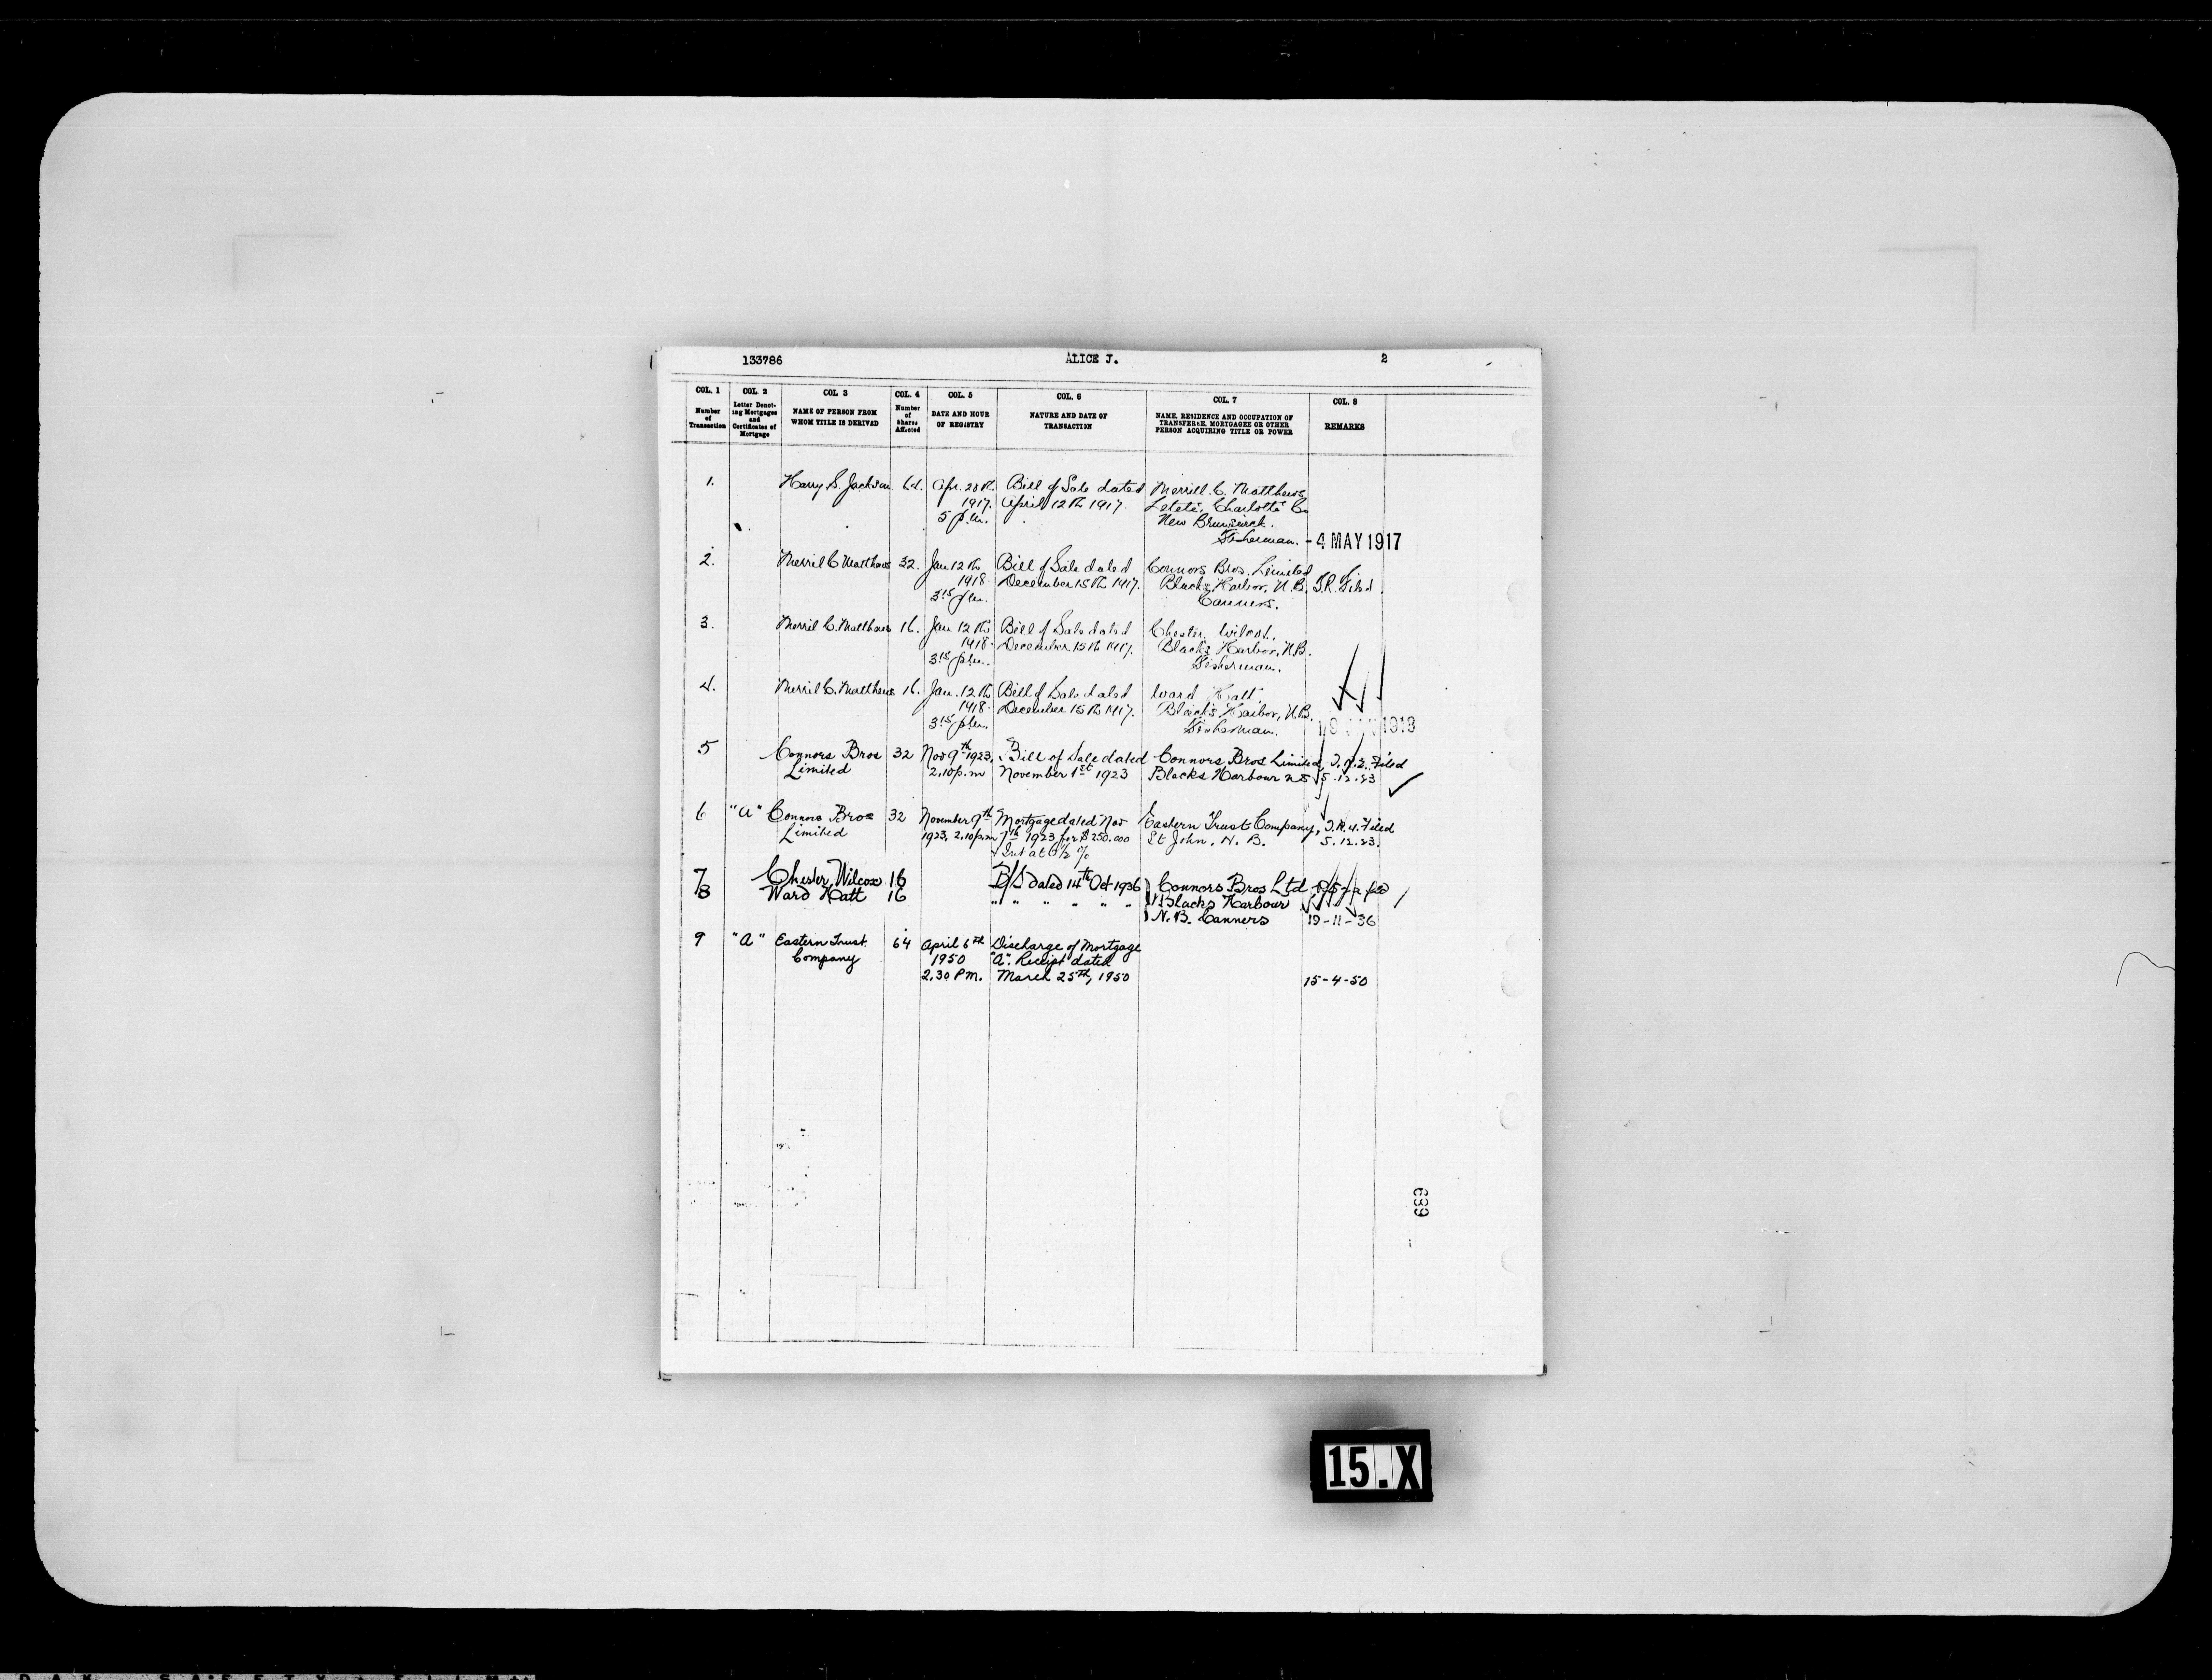 133786 ALICE J. 2
COL. 1 COL. 2 COL 3 COL. 4 COL. 5 COL. 6 COL. 7 COL. 8
Number of Transaction
Letter Denoting Mortgages and Certificates of Mortgage
NAME OF PERSON FROM WHOM TITLE IS DERIVED
Number of Shares Affected
DATE AND HOUR OF REGISTRY
NATURE AND DATE OF TRANSACTION
NAME, RESIDENCE AND OCCUPATION OF TRANSFEREE, MORTGAGEE OR OTHER PERSON ACQUIRING TITLE OR POWER
REMARKS
1. Harry S. Jackson 64. Apr. 28th Bill of Sale dated Merrill C. Matthews
1917. April 12th 1917. Letete, Charlotte Co
5 p.m. New Brunswick.
Fisherman. - 4 MAY 1917
2. Merril C Matthews 32. Jan 12th Bill of Sale dated Connors Bros. Limited
1918. December 15th 1917. Black's Harbor, N.B. T.R. Filed
3 15 p.m. Canners.
3. Merril C. Matthews 16. Jan 12th Bill of Sale dated Chester Wilcox.
1918. December 15th 1917. Black's Harbor, N.B.
3 15 p.m. Fisherman.
4. Merril C. Matthews 16. Jan. 12th Bill of Sale dated Ward Hatt.
1918. December 15th 1917. Black's Harbor, N.B.
3 15 p.m. Fisherman. 1918
5 Connors Bros 32 Nov 9th 1923, Bill of Sale dated Connors Bros Limited, Filed
Limited 2.10 p.m November 1st 1923 Blacks Harbour NB 5.12.23
6 "A" Connors Bros 32 November 9th Mortgage dated Nov Eastern Trust Company, T.R.4. Filed
Limited 1923, 2.10 p.m 7th 1923 for $250.000 St John, N. B. 5.12.23.
+ Int at 6½ %
7 Chester Wilcox 16 B/S dated 14th Oct 1936 Connors Bros Ltd
8 Ward Hatt 16 " " " " " " Blacks Harbour
N.B. Canners 19-11-36
9 "A" Eastern Trust 64 April 6th Discharge of Mortgage
Company 1950 "A". Receipt dated
2.30 P.M. March 25th, 1950 15-4-50
689
15.X